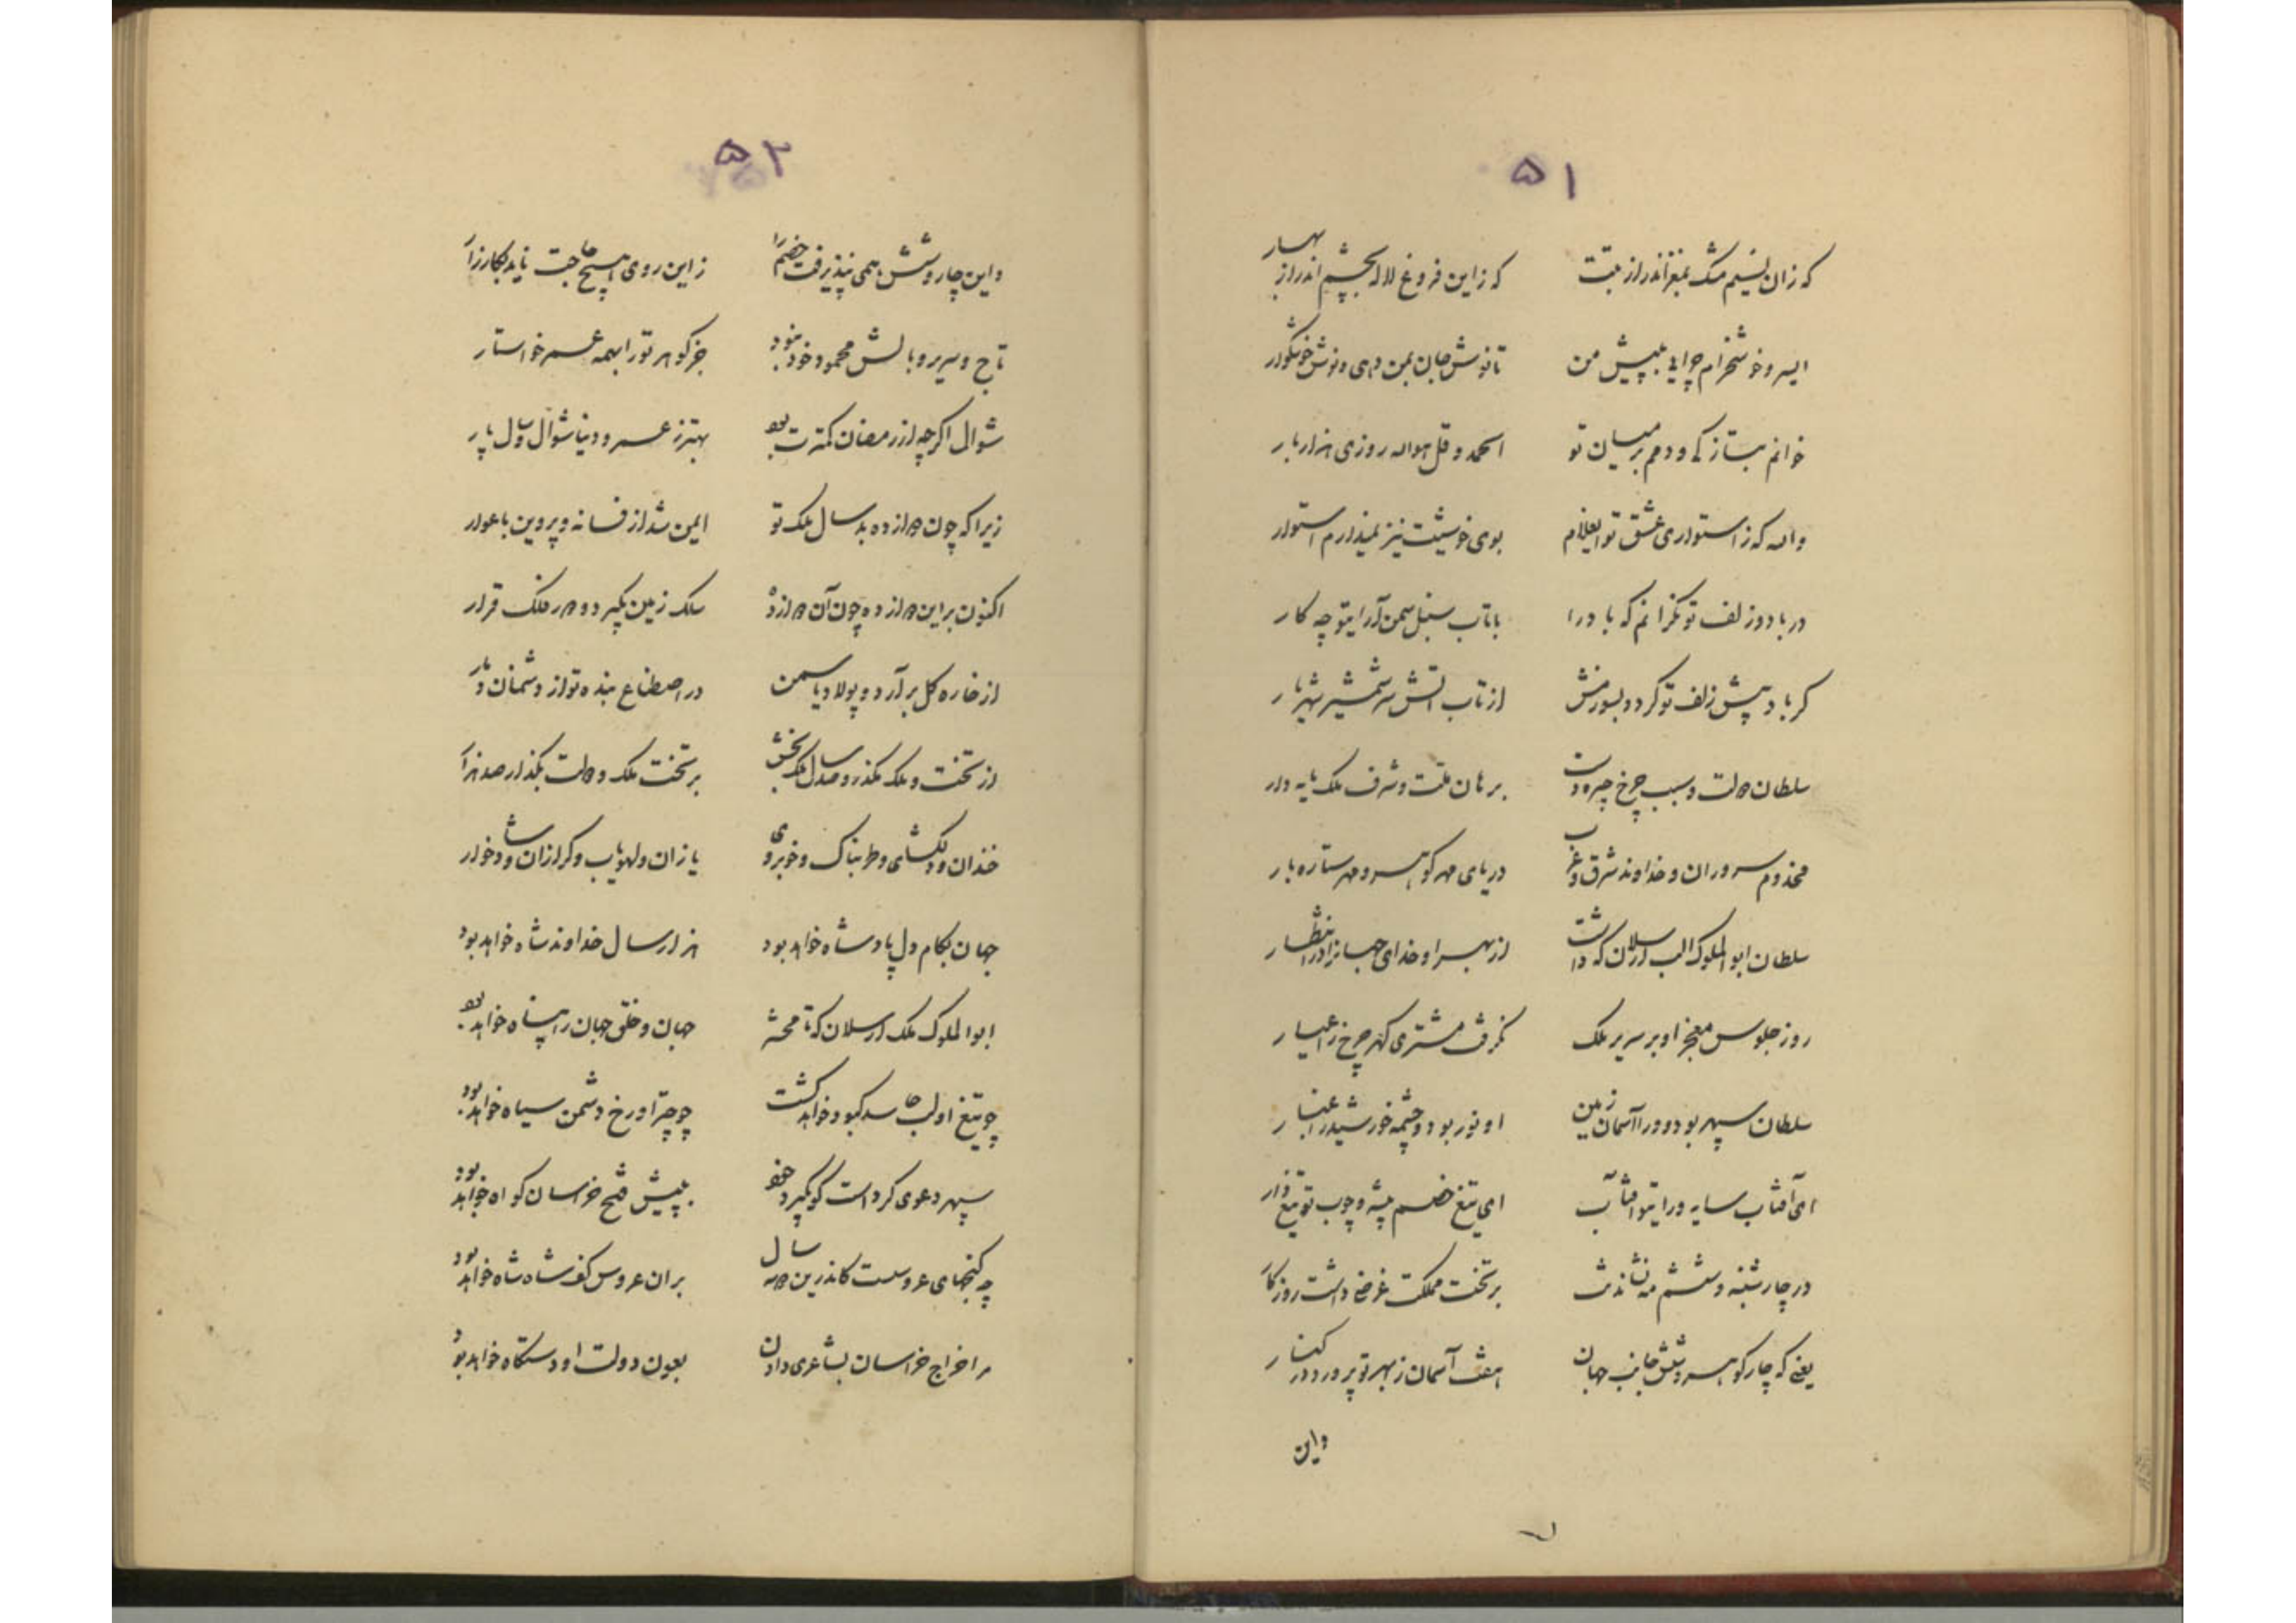 ۵۱
که زان نسیم مشک بمغز اندر از تبت که زاین فروغ لاله بچشم اندر از بهار
ای سرو خوشخرام چرا بی پیش من تا نوش جان بمن دهی و نوش خوشگوار
خوانم و دمم بر میان تو الحمد و قل هو الله روزی هزار بار
والله که ز استواری عشق تو ایغلام بوی خوشیت نیز نمیدارم استوار
در باد و زلف تو نگرانم که باد را با تاب سنبل سمن آرای تو چه کار
گر باد پیش زلف تو گردد بسوزمش از تاب آتش سر شمشیر شهریار
سلطان دولت و سبب چرخ چیره دست برهان ملت و شرف ملک پایه دار
مخدوم سروران و خداوند شرق و غرب دریای مهر گوهر و مهر ستاره بار
سلطان ابوالملوک الب ارسلان که داشت از بهر او خدای جهانرا در انتظار
روز جلوس معجز او بر سریر ملک بگرفت مشتری گهر چرخ را عیار
سلطان سپهر بود و ورا آسمان زمین او نور بود و چشمه خورشید را غبار
ای آفتاب سایه ورا یتو آفتاب ای تیغ خصم پیشه و چوب تو تیغ دار
در چارشنبه و ششم مه نشاندت بر تخت مملکت غرضی داشت روزگار
یعنی که چار گوهر و شش جانب جهان هفت آسمان ز بهر تو پرورد در کنار
واین
۵۲
واین چار و شش همی نپذیرفت خصم را زاین روی هیچ حاجت ناید بکارزار
تاج و سریر و بالش محمود خود نبود جز گوهر تو را بهمه عمر خواستار
شوال اگرچه از رمضان کمترست بود بهتر ز عمر و دنیا شوال و سال پار
زیرا که چون دوازده بد سال ملک تو ایمن شد از فسانه و پروین باعوار
اکنون بر این دوازده چون آن دوازده ملک زمین بگیر و در ملک قرار
از خاره گل برآرد و پولاد یاسمن در اصطناع بنده تو از دشمنان
از تخت و ملک مگذر و صد سال ملک بخش بر تخت ملک و دولت بگذار صد هزار
خندان و دلگشای و طربناک و خوبروی یازان و لهویاب و گرازان و شادخوار
جهان بکام دل پادشاه خواهد بود هزار سال خداوند شاه خواهد بود
ابوالملوک ملک ارسلان که تا محشر جهان و خلق جهان را پناه خواهد بود
چو تیغ او لب حاسد کبود خواهد گشت چو چتر او رخ دشمن سیاه خواهد بود
سپهر دعوی کرد است کو بگیرد به پیش فتح خراسان گواه خواهد بود
چه گنجهای عروسست کاندرین دو سه سال بران عروس کف شاه شاه خواهد بود
مرا خراج خراسان بشاعری دادن بعون دولت او دستگاه خواهد بود